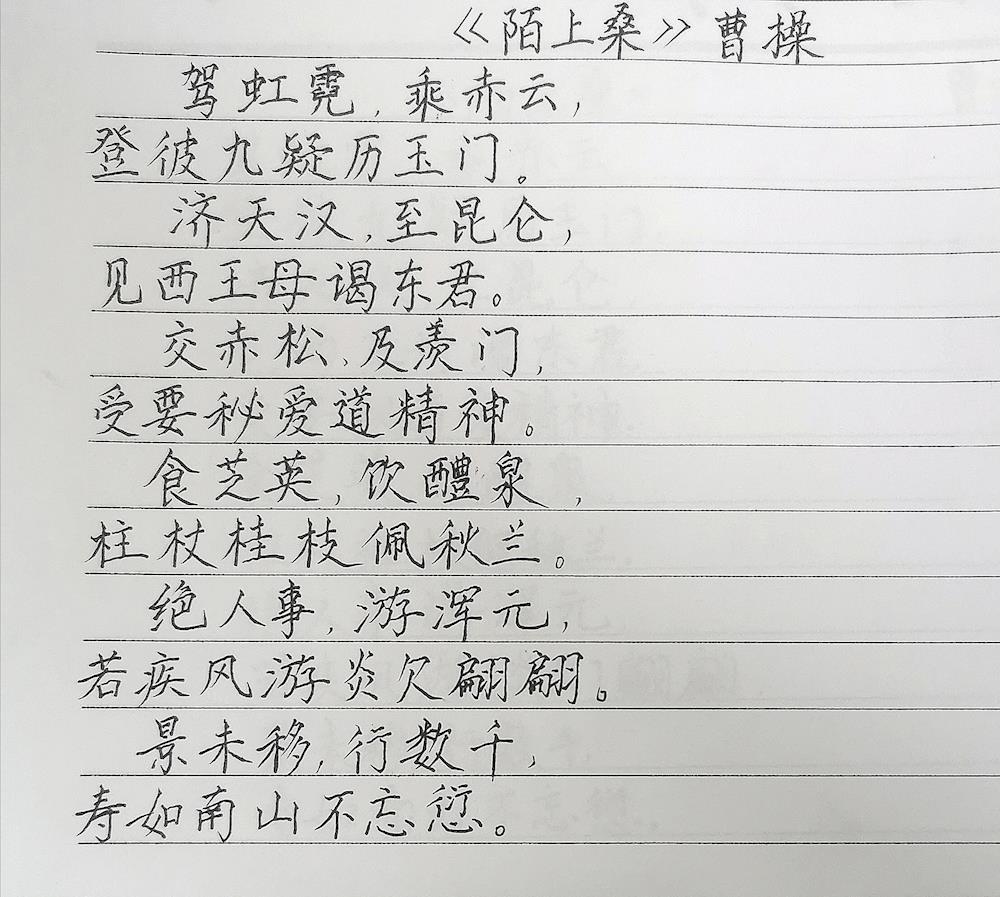 《陌上桑》曹操
驾虹霓,乘赤云,
登彼九疑历玉门。
济天汉,至昆仑,
见西王母谒东君。
交赤松、及羡门,
受要秘爱道精神。
食芝英,饮醴泉,
柱杖桂枝佩秋兰。
绝人事,游浑元,
若疾风游炎欠翩翩。
景未移,行数千,
寿如南山不忘愆。